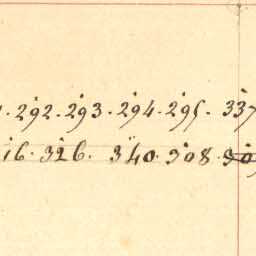 292. 293. 294. 295. 337
16. 326. 340. 308.